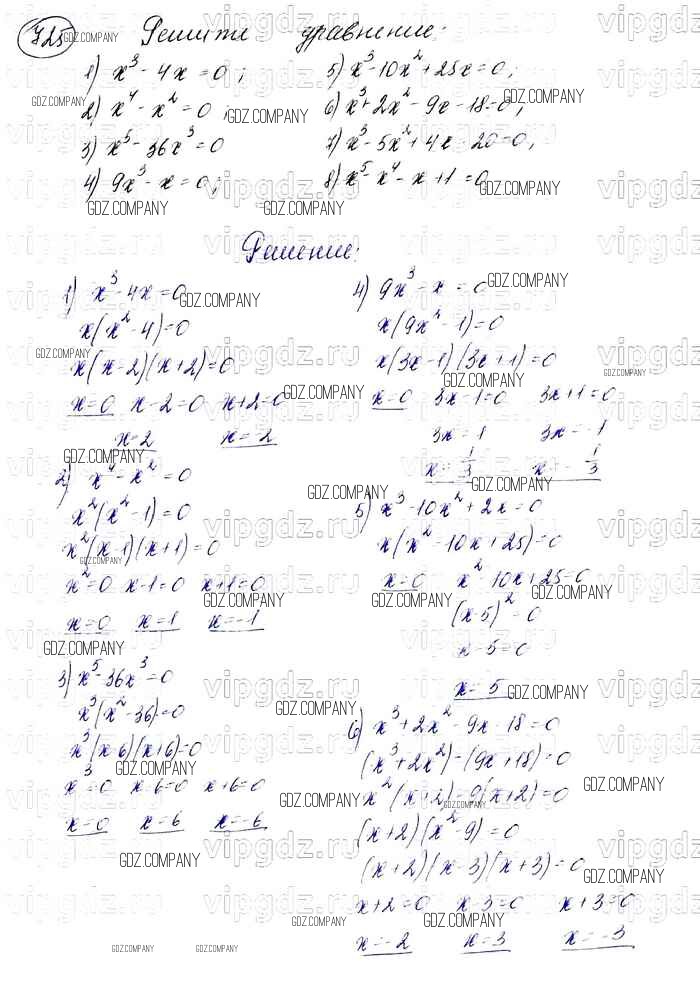 725 Решите уравнение:
1) x³ - 4x = 0;
2) x⁴ - x² = 0;
3) x⁵ - 36x³ = 0
4) 9x³ - x = 0;
5) x³ - 10x² + 25x = 0;
6) x³ + 2x² - 9x - 18 = 0;
7) x³ - 5x² + 4x - 20 = 0;
8) x⁵ - x⁴ - x + 1 = 0
Решение:
1) x³ - 4x = 0
x(x² - 4) = 0
x(x - 2)(x + 2) = 0
x = 0 x - 2 = 0 x + 2 = 0
x = 2 x = -2
2) x⁴ - x² = 0
x²(x² - 1) = 0
x²(x - 1)(x + 1) = 0
x² = 0 x - 1 = 0 x + 1 = 0
x = 0 x = 1 x = -1
3) x⁵ - 36x³ = 0
x³(x² - 36) = 0
x³(x - 6)(x + 6) = 0
x³ = 0 x - 6 = 0 x + 6 = 0
x = 0 x = 6 x = -6
4) 9x³ - x = 0
x(9x² - 1) = 0
x(3x - 1)(3x + 1) = 0
x = 0 3x - 1 = 0 3x + 1 = 0
3x = 1 3x = -1
x = 1/3 x = -1/3
5) x³ - 10x² + 2x = 0
x(x² - 10x + 25) = 0
x = 0 x² - 10x + 25 = 0
(x - 5)² = 0
x - 5 = 0
x = 5
6) x³ + 2x² - 9x - 18 = 0
(x³ + 2x²) - (9x + 18) = 0
x²(x + 2) - 9(x + 2) = 0
(x + 2)(x² - 9) = 0
(x + 2)(x - 3)(x + 3) = 0
x + 2 = 0 x - 3 = 0 x + 3 = 0
x = -2 x = 3 x = -3
GDZ.COMPANY
vipgdz.ru